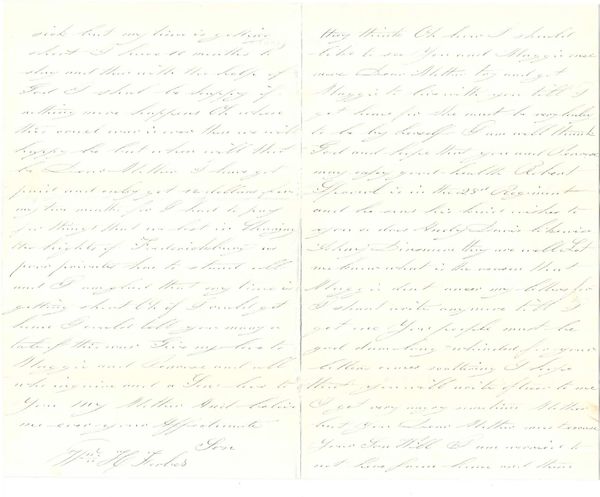 sick but my time is getting
short I have 10 months to
stay and then with the help of
God I shall be happy if
nothing more happens Oh when
this cruel war is over then we will
happy be but when will that
be Dear Mother I have got
paid and only got dollars for
my two months for I had to pay
for things that we lost in
the heights of Fredericksburg us
poor privates have to stand all
and I am glad that my time is
getting short Oh if I could get
home I could tell you many a
tale of this war Give my love to
Maggie and and all
who inquire and a Kiss to
You my Mother And believe
me ever your Affectionate
Son
Wm H
they think Oh how I should
like to see You and Maggie once
more Dear Mother try and get
Maggie to live with you till I
get home for she must be very lonely
to be by herself I am well thank
God and hope that you and
may enjoy good health Robert
is in the 23rd Regiment
and he sends his best wishes to
you so does Andy Davis
they are well Let
me know what is the reason that
Maggie dont answer my letters for
I shant write any more till I
get one Your people must be
for your
letters comes I hope
that you will write oftener to me
I get very angry sometimes Mother
but You Dear Mother must excuse
Your Son Will I am worried to
not hear from home and then